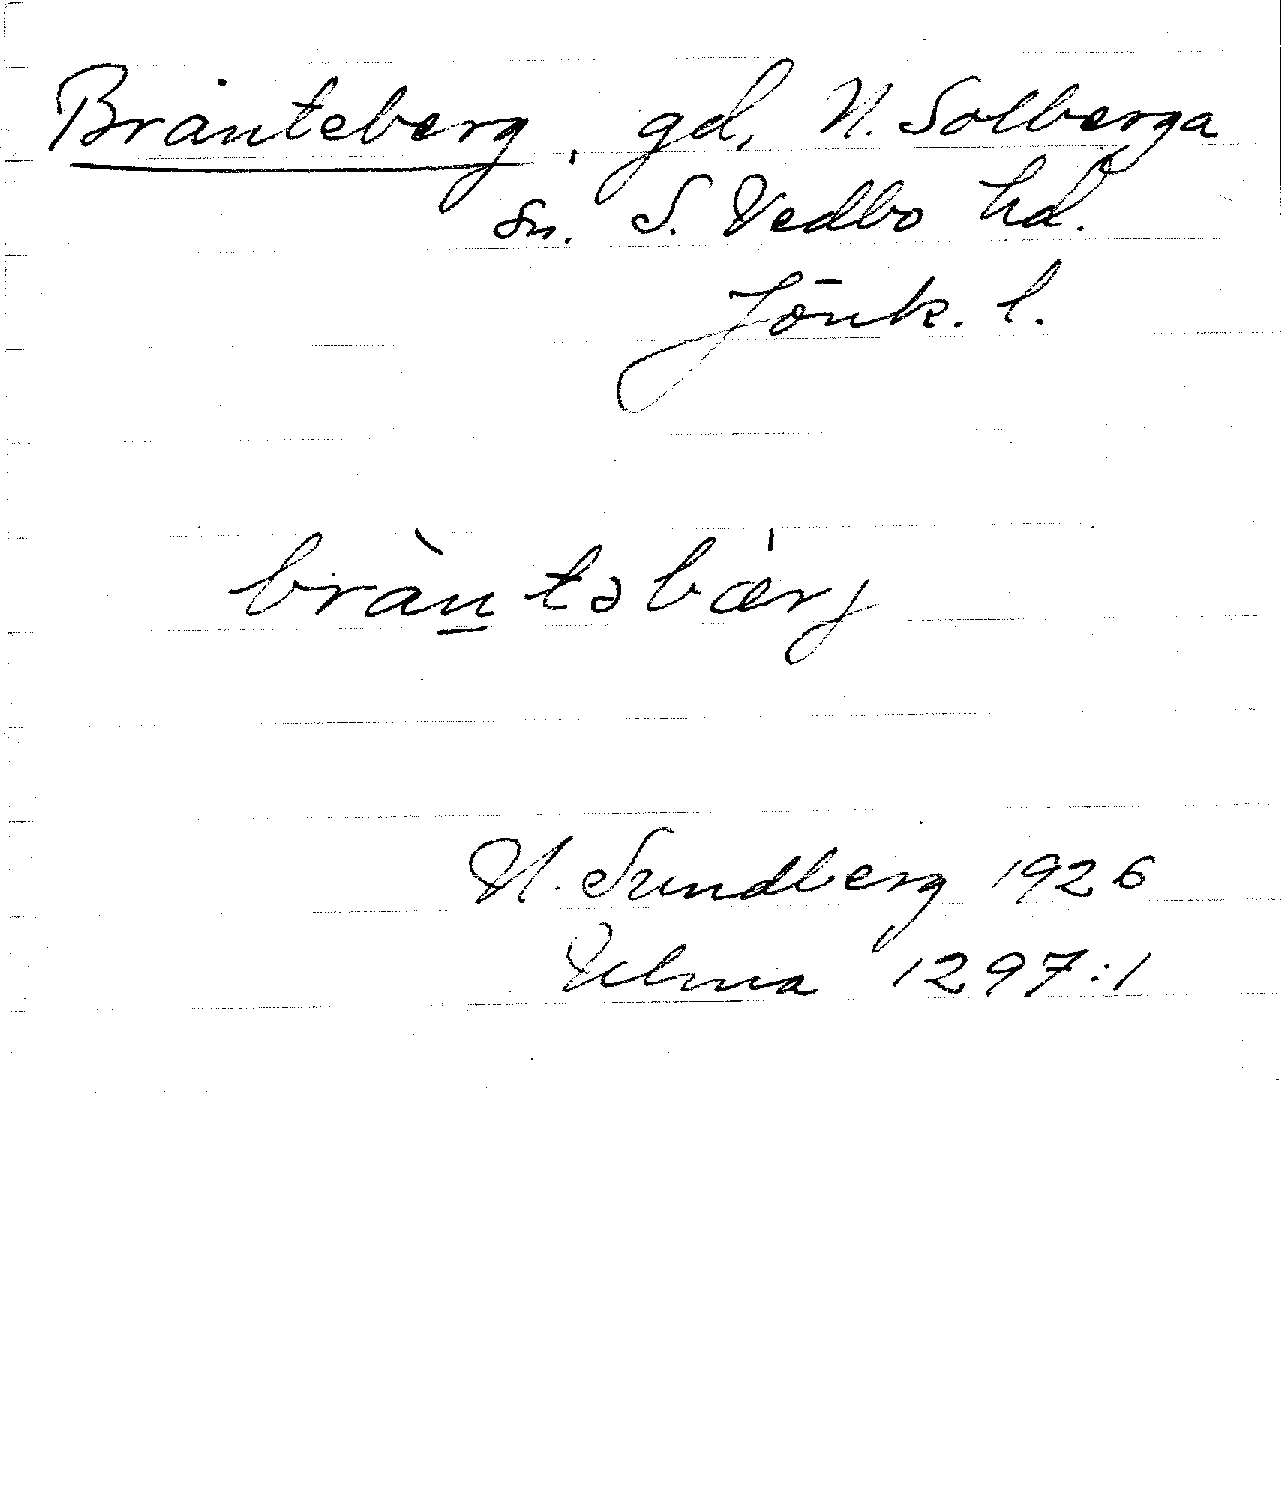 Bränteberg, gd, N. Solberga
sn. S. Vedbo hd.
Jönk. l.
brän̲təbærj
H. Sundberg 1926
Ulma 1297:1